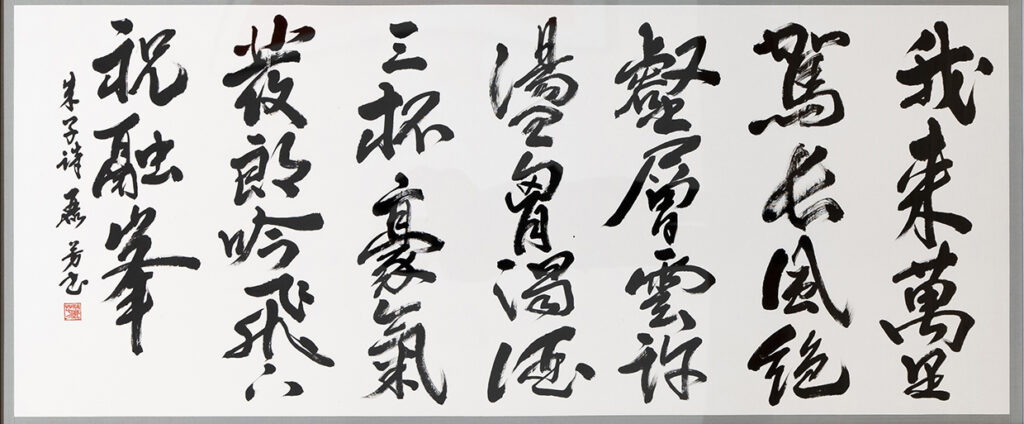 我来萬里
駕長風絶
壑層雲許
盪胷濁酒
三杯豪氣
發朗吟飛下
祝融峯
朱子詩 磊芳书